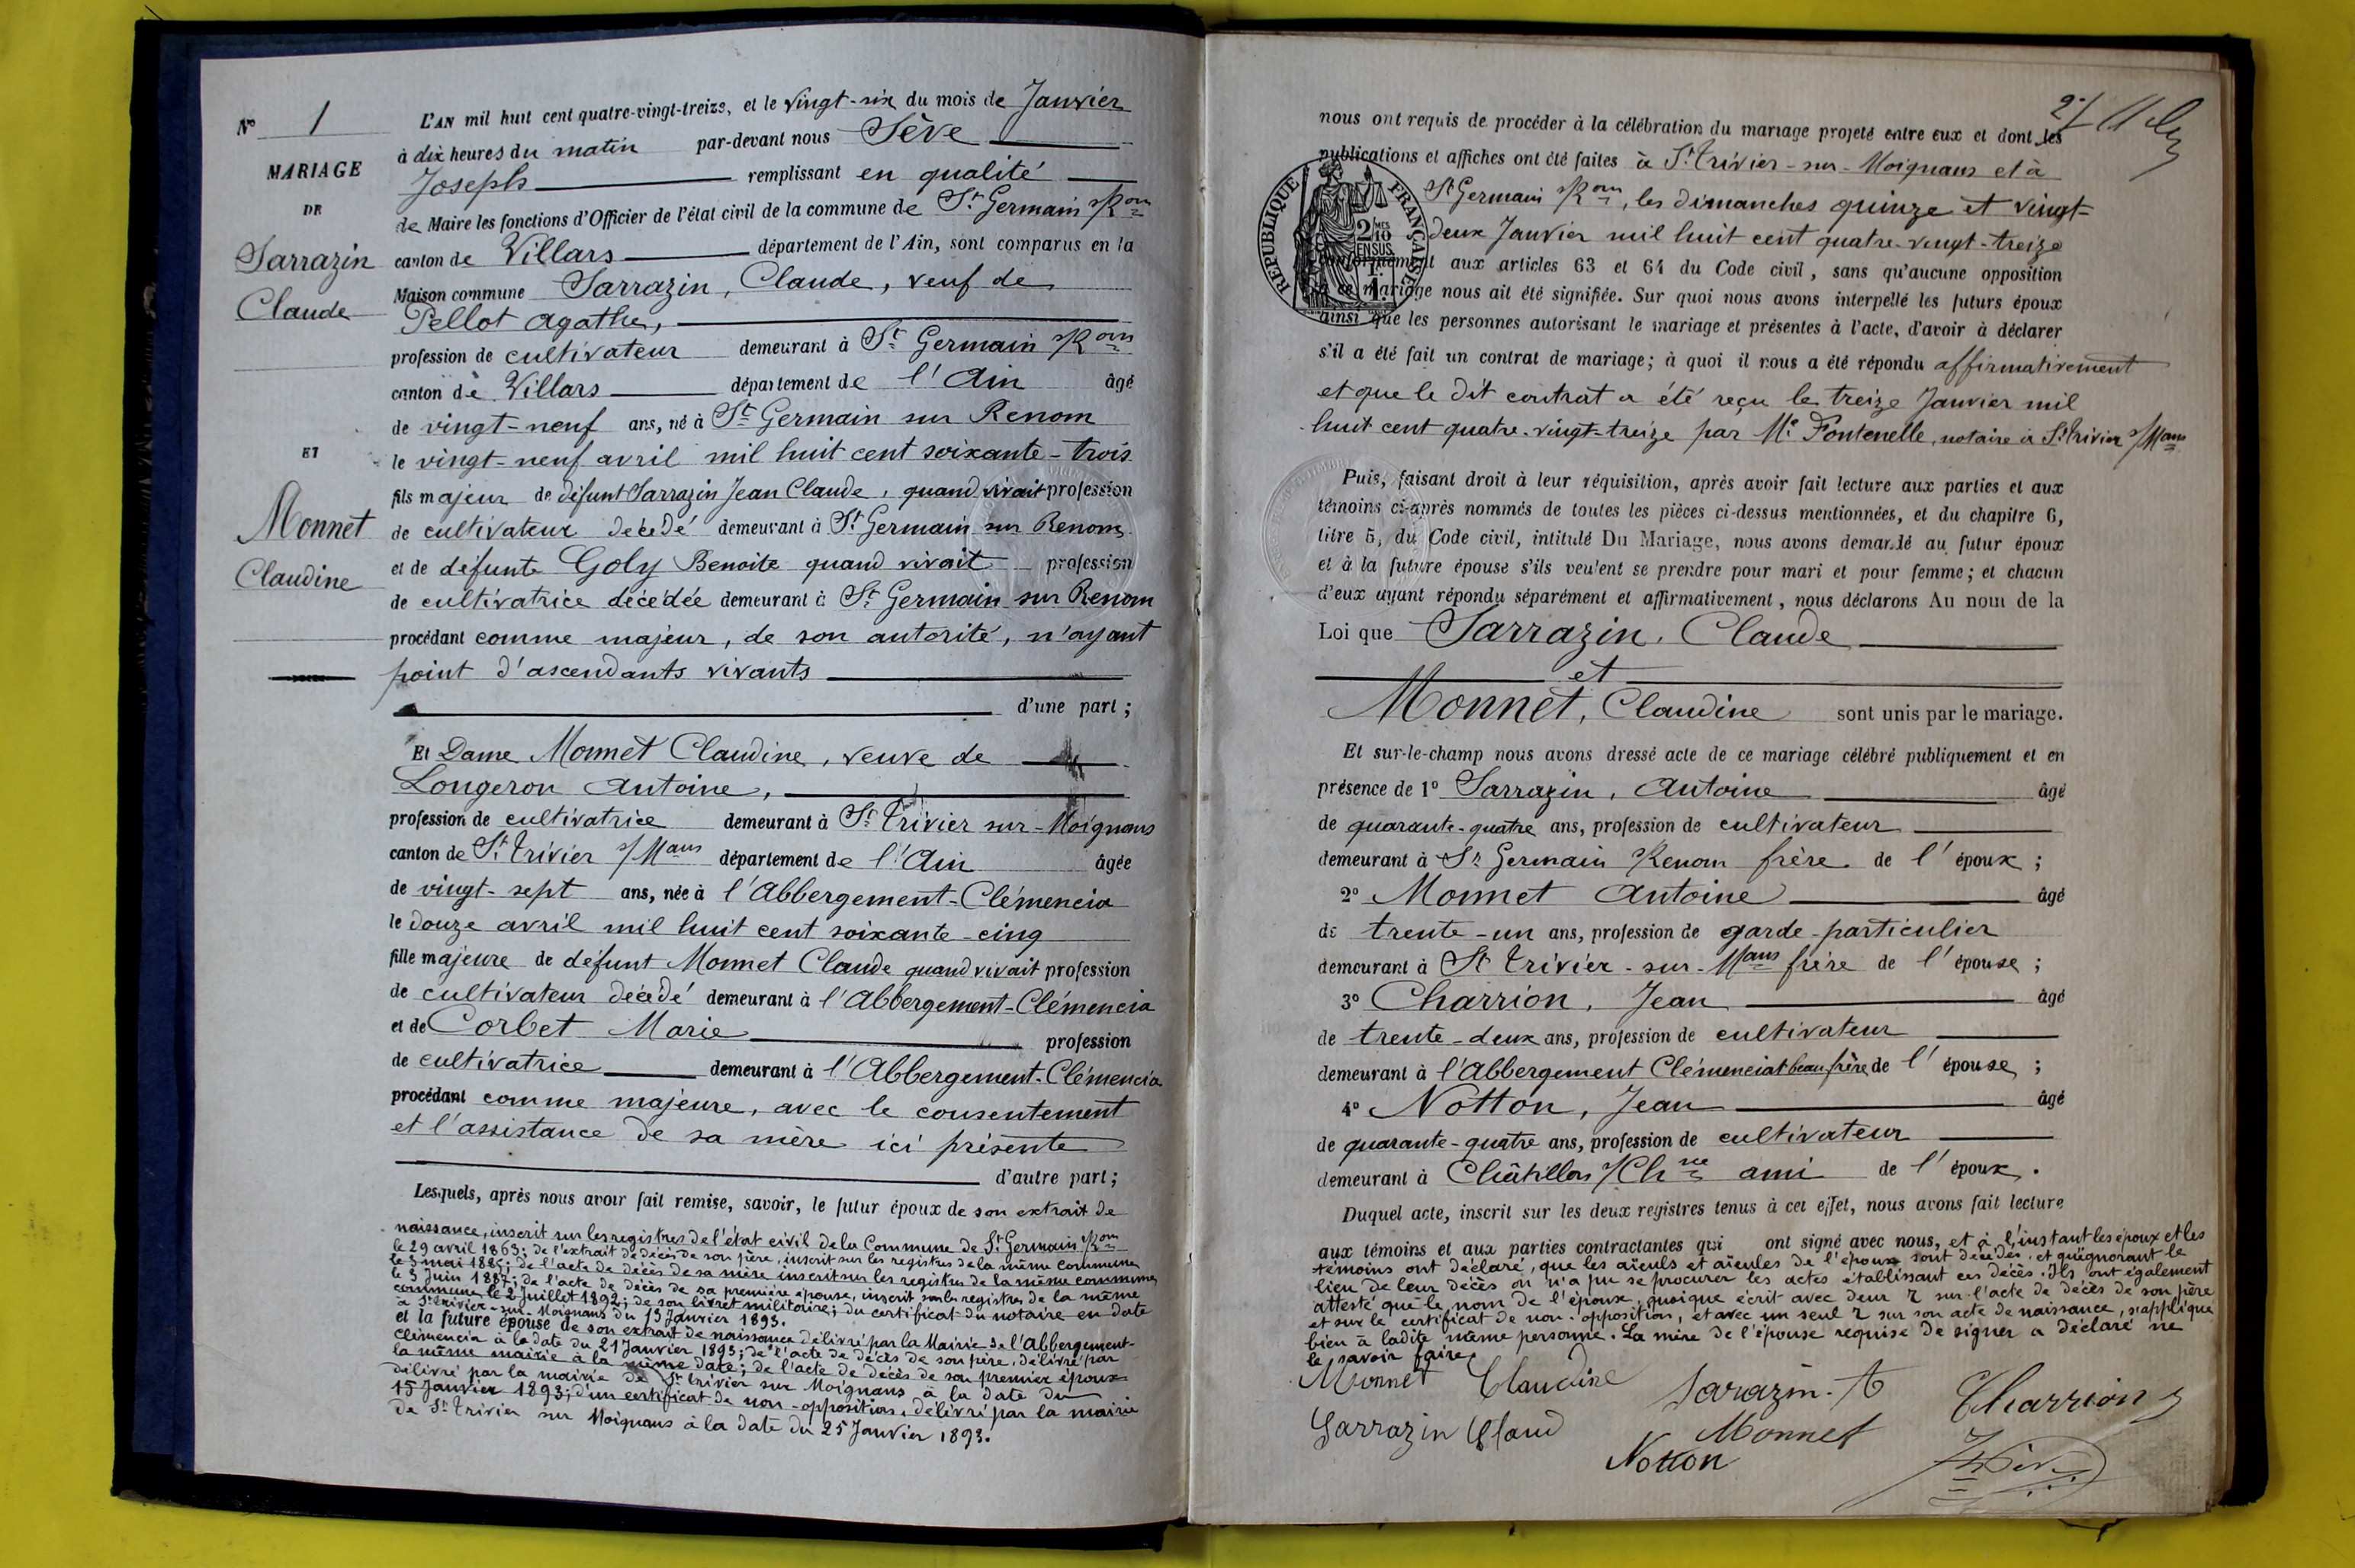 N° 1
MARIAGE
DE
Sarrazin
Claude
ET
Monnet
Claudine
L'AN mil huit cent quatre-vingt-treize, et le vingt-six du mois de Janvier
à dix heures du matin par-devant nous Sève
Joseph remplissant en qualité
de Maire les fonctions d'Officier de l'état civil de la commune de St Germain s/Rom
canton de Villars département de l'Ain, sont comparus en la
Maison commune Sarrazin, Claude, veuf de
Pellot Agathe,
profession de cultivateur demeurant à St Germain s/Rom
canton de Villars département de l'Ain âgé
de vingt-neuf ans, né à St Germain sur Renom
le vingt-neuf avril mil huit cent soixante-trois
fils majeur de défunt Sarrazin Jean Claude, quand vivait profession
de cultivateur décédé demeurant à St Germain sur Renom
et de défunte Goly Benoite quand vivait profession
de cultivatrice décédée demeurant à St Germain sur Renom
procédant comme majeur, de son autorité, n'ayant
point d'ascendants vivants
d'une part ;
Et Dame Monnet Claudine, veuve de
Longeron Antoine,
profession de cultivatrice demeurant à St Trivier sur-Moignans
canton de St Trivier s/Mans département de l'Ain âgée
de vingt-sept ans, née à l'Abbergement-Clémencia
le douze avril mil huit cent soixante-cinq
fille majeure de défunt Monnet Claude quand vivait profession
de cultivateur décédé demeurant à l'Abbergement-Clémencia
et de Corbet Marie profession
de cultivatrice demeurant à l'Abbergement-Clémencia
procédant comme majeure, avec le consentement
et l'assistance de sa mère ici présente
d'autre part ;
Lesquels, après nous avoir fait remise, savoir, le futur époux de son extrait de
naissance, inscrit sur les registres de l'état civil de la Commune de St Germain s/Rom
le 29 avril 1863; de l'extrait de décès de son père, inscrit sur les registres de la même commune
le 5 mai 188; de l'acte de décès de sa mère inscrit sur les registres de la même commune
le 3 Juin 1887; de l'acte de décès de sa première épouse, inscrit sur les registres de la même
commune le 2 Juillet 1892; de son livret militaire; du certificat du notaire en date
à St Trivier-sur-Moignans du 13 Janvier 1893.
et la future épouse de son extrait de naissance délivré par la Mairie de l'Abbergement-
Clémencia à la date du 21 Janvier 1893; de l'acte de décès de son père, délivré par
la même mairie à la même date; de l'acte de décès de son premier époux
délivré par la mairie de St Trivier sur Moignans à la date du
15 Janvier 1893; d'un certificat de non-opposition, délivré par la mairie
de St Trivier sur Moignans à la date du 25 Janvier 1893.
nous ont requis de procéder à la célébration du mariage projeté entre eux et dont les
publications et affiches ont été faites à St Trivier-sur-Moignans et à
St Germain s/Rom, les dimanches quinze et vingt-
deux Janvier mil huit cent quatre-vingt-treize
conformément aux articles 63 et 64 du Code civil, sans qu'aucune opposition
à ce mariage nous ait été signifiée. Sur quoi nous avons interpellé les futurs époux
ainsi que les personnes autorisant le mariage et présentes à l'acte, d'avoir à déclarer
s'il a été fait un contrat de mariage; à quoi il nous a été répondu affirmativement
et que le dit contrat a été reçu le treize Janvier mil
huit cent quatre-vingt-treize par Me Fontenelle, notaire à St Trivier s/Mans
REPUBLIQUE FRANÇAISE
2/10 EN SUS
Puis, faisant droit à leur réquisition, après avoir fait lecture aux parties et aux
témoins ci-après nommés de toutes les pièces ci-dessus mentionnées, et du chapitre 6,
titre 5, du Code civil, intitulé Du Mariage, nous avons demandé au futur époux
et à la future épouse s'ils veulent se prendre pour mari et pour femme; et chacun
d'eux ayant répondu séparément et affirmativement, nous déclarons Au nom de la
Loi que Sarrazin, Claude
et
Monnet, Claudine sont unis par le mariage.
Et sur-le-champ nous avons dressé acte de ce mariage célébré publiquement et en
présence de 1° Sarrazin, Antoine âgé
de quarante-quatre ans, profession de cultivateur
demeurant à St Germain s/Renom frère de l'époux ;
2° Monnet Antoine âgé
de trente-un ans, profession de garde-particulier
demeurant à St Trivier-sur-Mans frère de l'épouse ;
3° Charrion, Jean âgé
de trente-deux ans, profession de cultivateur
demeurant à l'Abbergement Clémenciat beau frère de l'épouse ;
4° Notton, Jean âgé
de quarante-quatre ans, profession de cultivateur
demeurant à Châtillon s/Chne ami de l'époux.
Duquel acte, inscrit sur les deux registres tenus à cet effet, nous avons fait lecture
aux témoins et aux parties contractantes qui ont signé avec nous, et à l'instant les époux et les
témoins ont déclaré, que les aïeuls et aïeules de l'époux sont décédés, et qu'ignorant le
lieu de leur décès on n'a pu se procurer les actes établissant ces décès. Ils ont également
attesté que le nom de l'époux, quoique écrit avec deux r sur l'acte de décès de son père
et sur le certificat de non-opposition, et avec un seul r sur son acte de naissance, s'applique
bien à ladite même personne. La mère de l'épouse requise de signer a déclaré ne
le savoir faire.
Monnet Claudine Sarazin. A Charrion
Sarrazin Claud Monnet
Notton